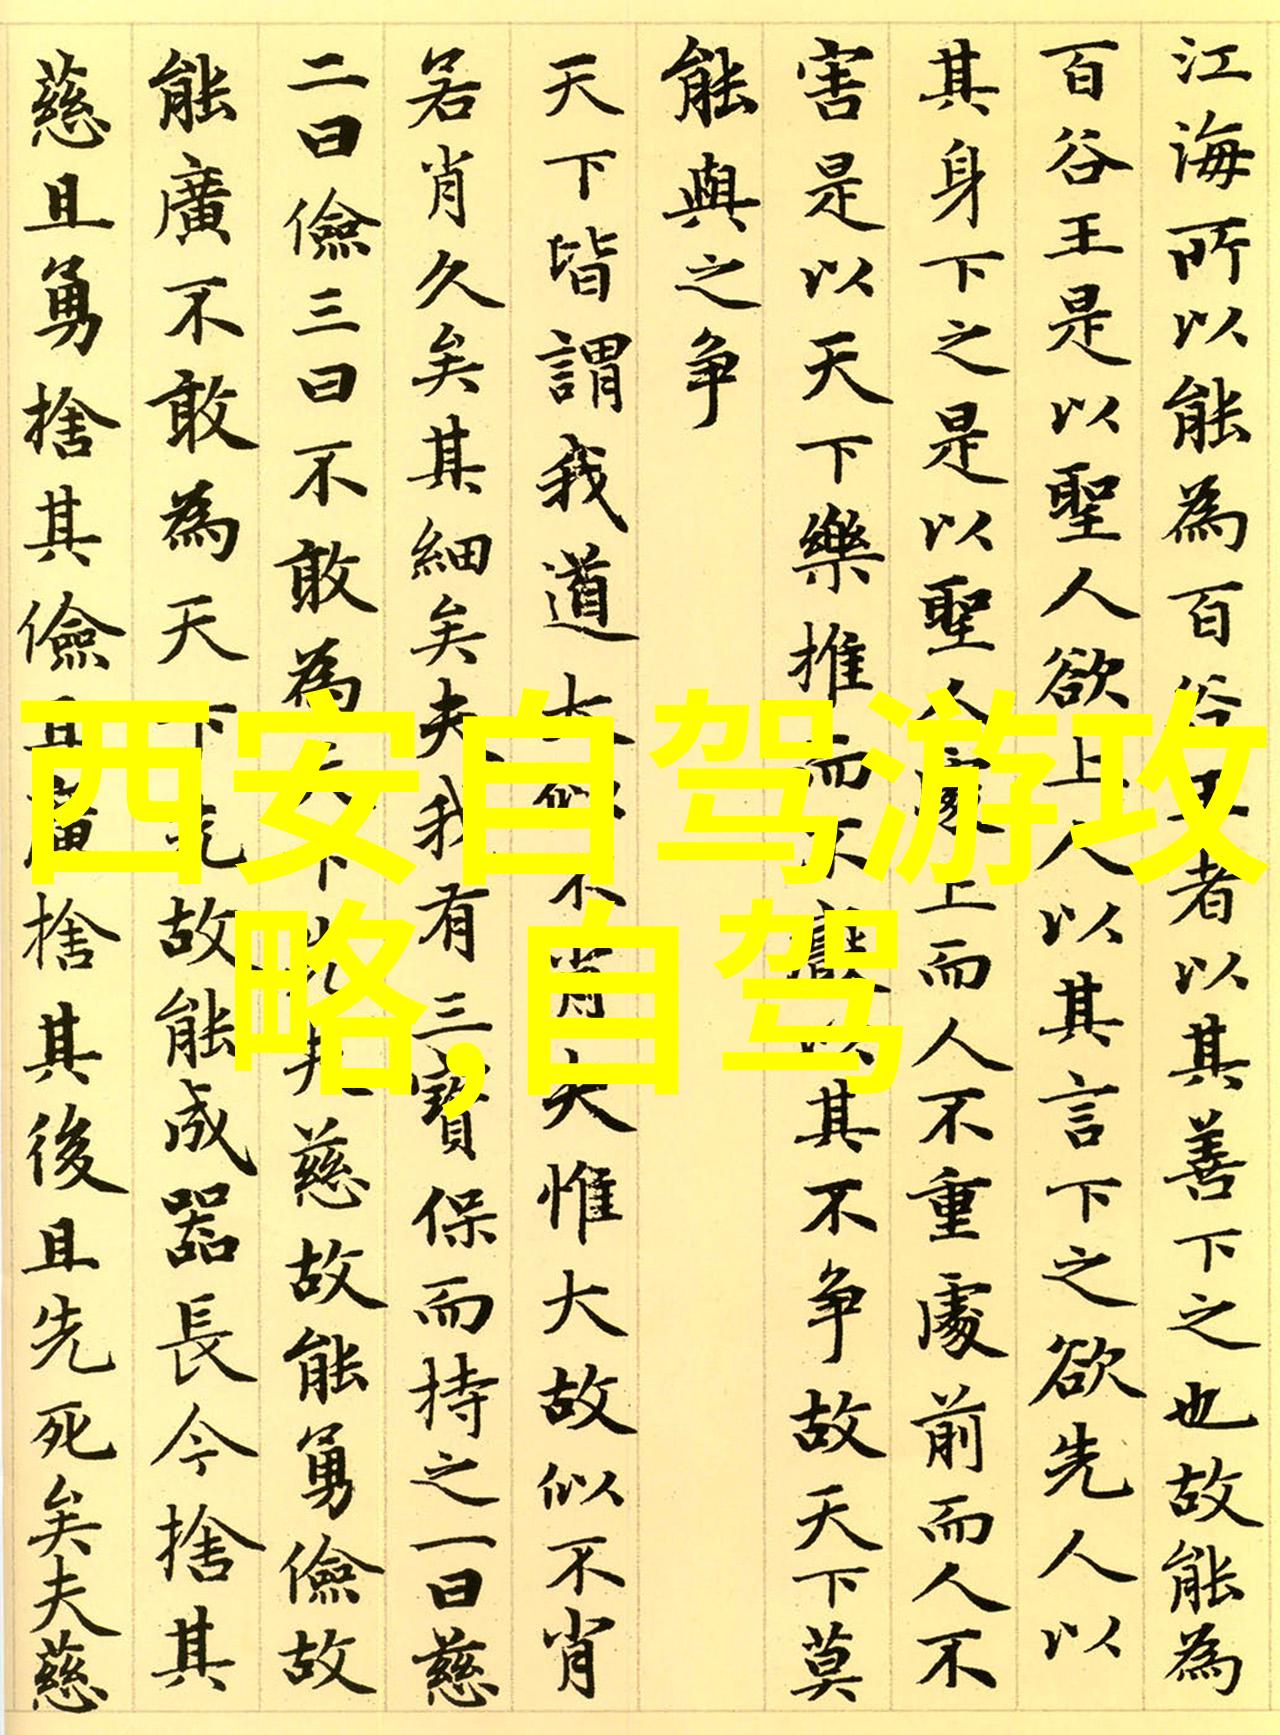 江海所以能為百谷王者以其善下之也故能為
百谷王是以聖人欲上人以其言下之欲先人以
其身下之是以聖人處上而人不重處前而人不
害是以天下樂推而不厭以其不争故天下莫
能與之争
天下皆謂我道大似不肖夫惟大故似不肖
若肖久矣其細矣夫我有三寶保而持之一曰慈
二曰儉三曰不敢為天下先夫慈故能勇儉故
能廣不敢為天下先故能成器長今捨其
慈且勇捨其儉且廣捨其後且先死矣夫慈
西安自驾游攻
略,自驾